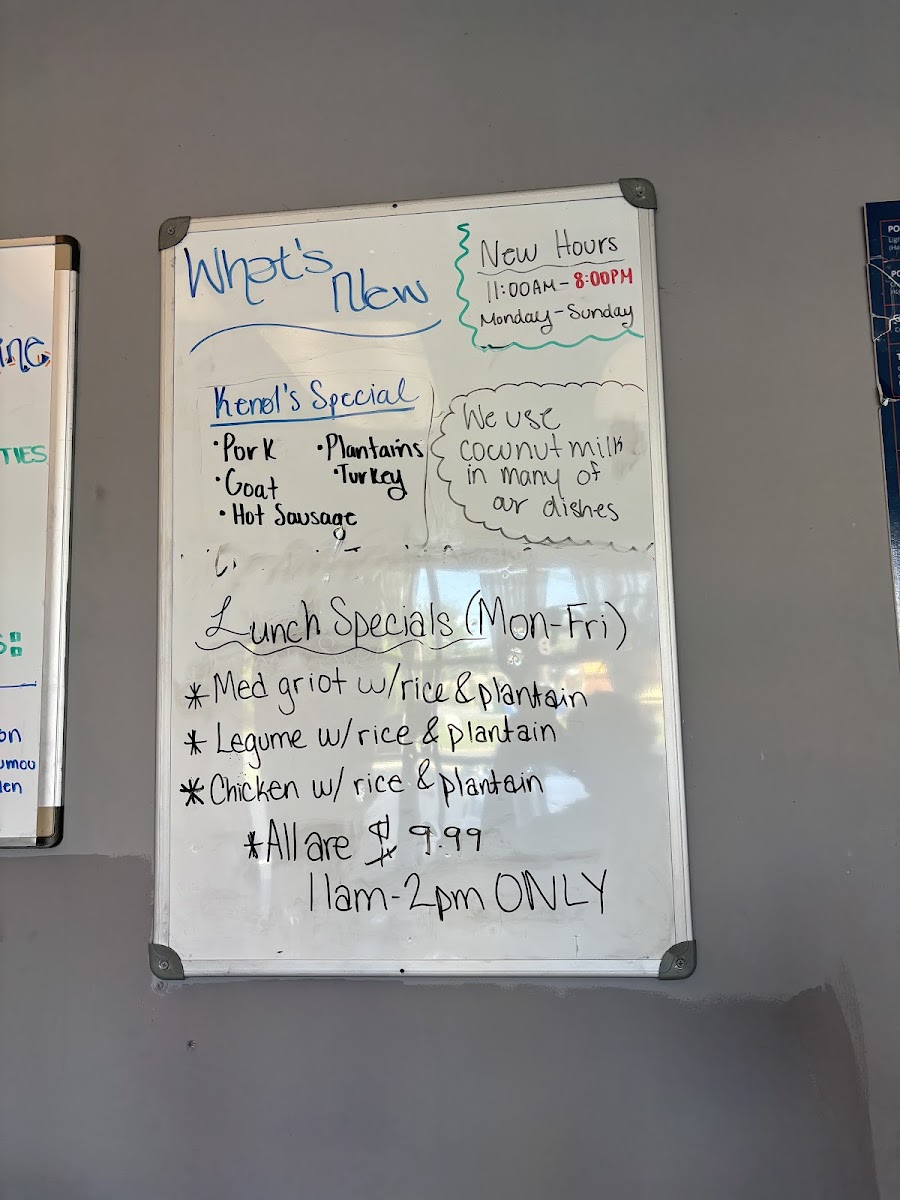 What's New
New Hours
11:00AM-8:00PM
Monday-Sunday
Kenol's Special
·Pork
·Goat
·Hot Sausage
·Plantains
·Turkey
We use
coconut milk
in many of
our dishes
Lunch Specials (Mon-Fri)
* Med griot w/rice & plantain
* Legume w/rice & plantain
* Chicken w/ rice & plantain
*All are $ 9.99
11am-2pm ONLY
TIES